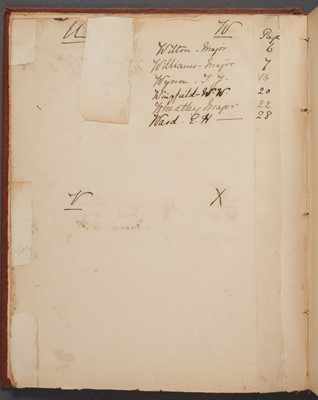 U W Page
Wilton. Major 6
Williams. Major 7
Wynn. 
Wingfield. W.W. 20
Wheatley, Major 22
Ward. E H — 28
V X